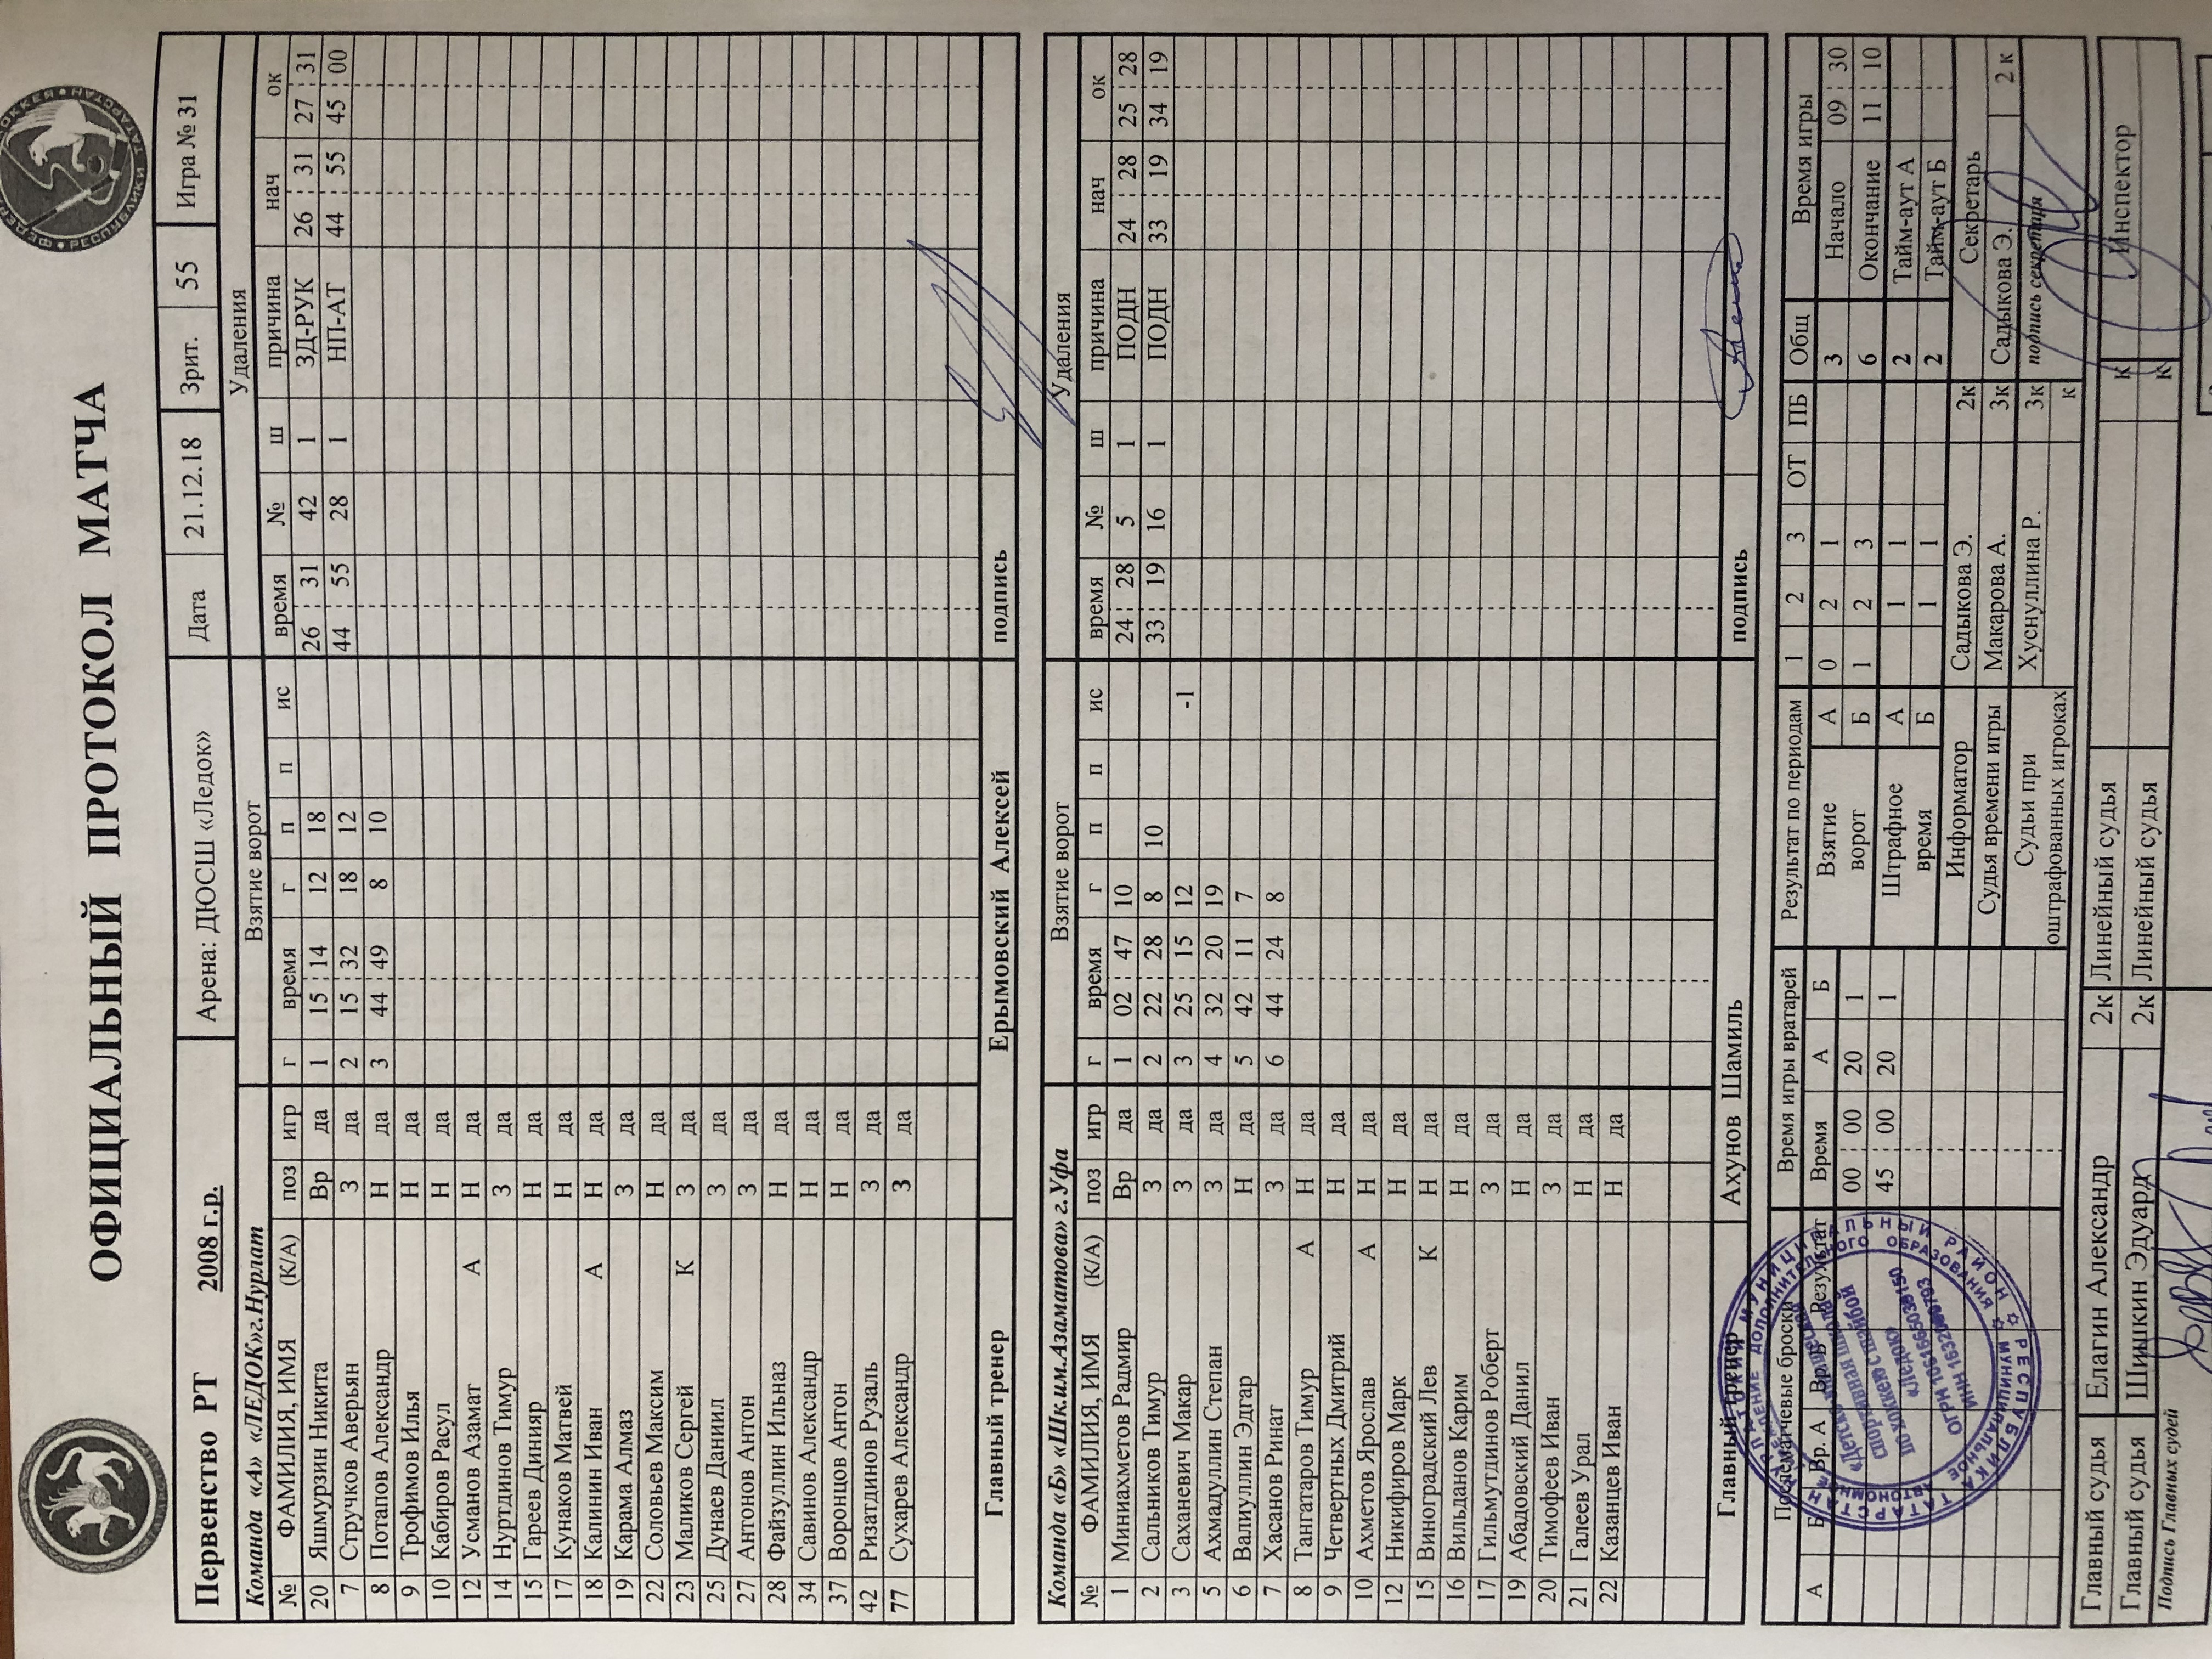 ОФИЦИАЛЬНЫЙ ПРОТОКОЛ МАТЧА
Первенство РТ 2008 г.р. Арена: ДЮСШ «Ледок» Дата 21.12.18 Зрит. 55 Игра № 31
Команда «А» «ЛЕДОК»г.Нурлат Взятие ворот Удаления
№ ФАМИЛИЯ, ИМЯ (К/А) поз игр г время г п п ис время № ш причина нач ок
20 Яшмурзин Никита Вр да 1 15 : 14 12 18 26 : 31 42 1 ЗД-РУК 26 : 31 27 : 31
7 Стручков Аверьян З да 2 15 : 32 18 12 44 : 55 28 1 НП-АТ 44 : 55 45 : 00
8 Потапов Александр Н да 3 44 : 49 8 10
9 Трофимов Илья Н да
10 Кабиров Расул Н да
12 Усманов Азамат А Н да
14 Нуртдинов Тимур З да
15 Гареев Динияр Н да
17 Кунаков Матвей Н да
18 Калинин Иван А Н да
19 Карама Алмаз З да
22 Соловьев Максим Н да
23 Маликов Сергей К З да
25 Дунаев Данил З да
27 Антонов Антон З да
28 Файзуллин Ильназ Н да
34 Савинов Александр Н да
37 Воронцов Антон Н да
42 Ризатдинов Рузаль З да
77 Сухарев Александр З да
Главный тренер Ерымовский Алексей подпись
Команда «Б» «Шк.им.Азаматова» г.Уфа Взятие ворот Удаления
№ ФАМИЛИЯ, ИМЯ (К/А) поз игр г время г п п ис время № ш причина нач ок
1 Миниахметов Радмир Вр да 1 02 : 47 10 24 : 28 5 1 ПОДН 24 : 28 25 : 28
2 Сальников Тимур З да 2 22 : 28 8 10 33 : 19 16 1 ПОДН 33 : 19 34 : 19
3 Саханевич Макар З да 3 25 : 15 12 -1
5 Ахмадуллин Степан З да 4 32 : 20 19
6 Валиуллин Эдгар Н да 5 42 : 11 7
7 Хасанов Ринат З да 6 44 : 24 8
8 Тангатаров Тимур А Н да
9 Четвертных Дмитрий Н да
10 Ахметов Ярослав А Н да
12 Никифиров Марк Н да
15 Виноградский Лев К Н да
16 Вильданов Карим Н да
17 Гильмутдинов Роберт З да
19 Абадовский Данил Н да
20 Тимофеев Иван З да
21 Галеев Урал Н да
22 Казанцев Иван Н да
Главный тренер Ахунов Шамиль подпись
Послематчевые броски Время игры вратарей Результат по периодам 1 2 3 ОТ ПБ Общ Время игры
А Б Вр. А Вр.Б Результат Время А Б Взятие ворот А 0 2 1 3 Начало 09 : 30
00 : 00 20 1 Б 1 2 3 6 Окончание 11 : 10
45 : 00 20 1 Штрафное время А 1 1 2 Тайм-аут А
Б 1 1 2 Тайм-аут Б
Информатор Садыкова Э. 2к Секретарь
Судья времени игры Макарова А. 3к Садыкова Э. 2 к
Судьи при оштрафованных игроках Хуснуллина Р. 3к подпись секретаря
к
Главный судья Елагин Александр 2к Линейный судья к Инспектор
Главный судья Шишкин Эдуард 2к Линейный судья к
Подпись Главных судей